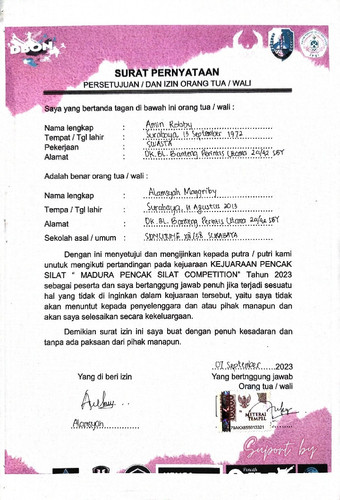 DBON
SURAT PERNYATAAN
PERSETUJUAN / DAN IZIN ORANG TUA / WALI
Saya yang bertanda tagan di bawah ini orang tua / wali :
Nama lengkap : Amin Robby
Tempat / Tgl lahir : Surabaya, 13 September 1972
Pekerjaan : SWASTA
Alamat : DK. BL. Banteng Perintis Utama
Adalah benar orang tua / wali :
Nama lengkap : Alamsyah Magribby
Tempa / Tgl lahir : Surabaya, 11 Agustus 2013
Alamat : DK. BL. Banteng Perintis Utama
Sekolah asal / umum : SURABAYA
Dengan ini menyetujui dan mengijinkan kepada putra / putri kami
untuk mengikuti pertandingan pada kejuaraan KEJUARAAN PENCAK
SILAT " MADURA PENCAK SILAT COMPETITION" Tahun 2023
sebagai peserta dan saya bertanggung jawab penuh jika terjadi sesuatu
hal yang tidak di inginkan dalam kejuaraan tersebut, yaitu saya tidak
akan menuntut kepada penyelenggara dan atau pihak manapun dan
akan saya selesaikan secara kekeluargaan.
Demikian surat izin ini saya buat dengan penuh kesadaran dan
tanpa ada paksaan dari pihak manapun.
07 September 2023
Yang di beri izin
Yang bertnggung jawab
Orang tua / wali
METERAI
TEMPEL
Alamsyah
Suport by